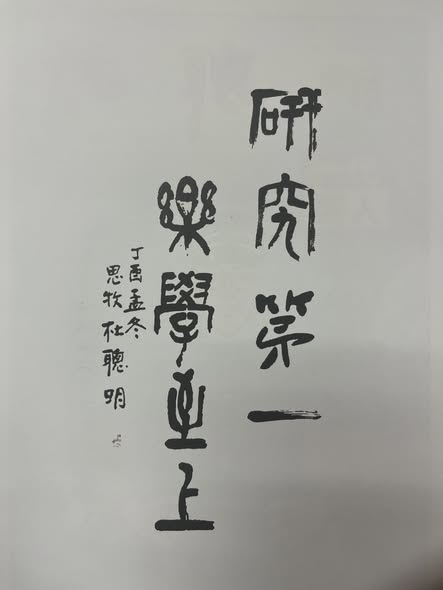 研究第一
樂學至上
丁酉孟冬
思牧杜聰明